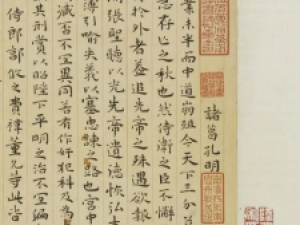 諸葛孔明
業未半而中道崩殂今天下三分
急存亡之秋也然侍衛之臣不懈
於外者蓋追先帝之殊遇欲報
張聖聽以光先帝遺德恢弘
薄引喻失義以塞忠諫之路也宮中
臧否不宜異同若有作奸犯科及為
其刑賞以昭陛下平明之治不宜偏
侍郎郭攸之費禕董允等此皆